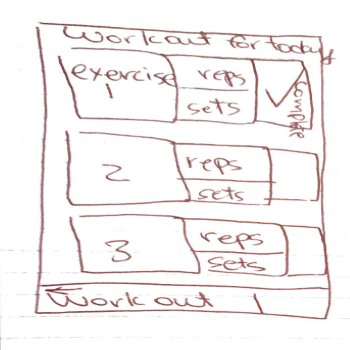 Workout for today
exercise
1
reps
sets
complete
2
reps
sets
3
reps
sets
Workout 1